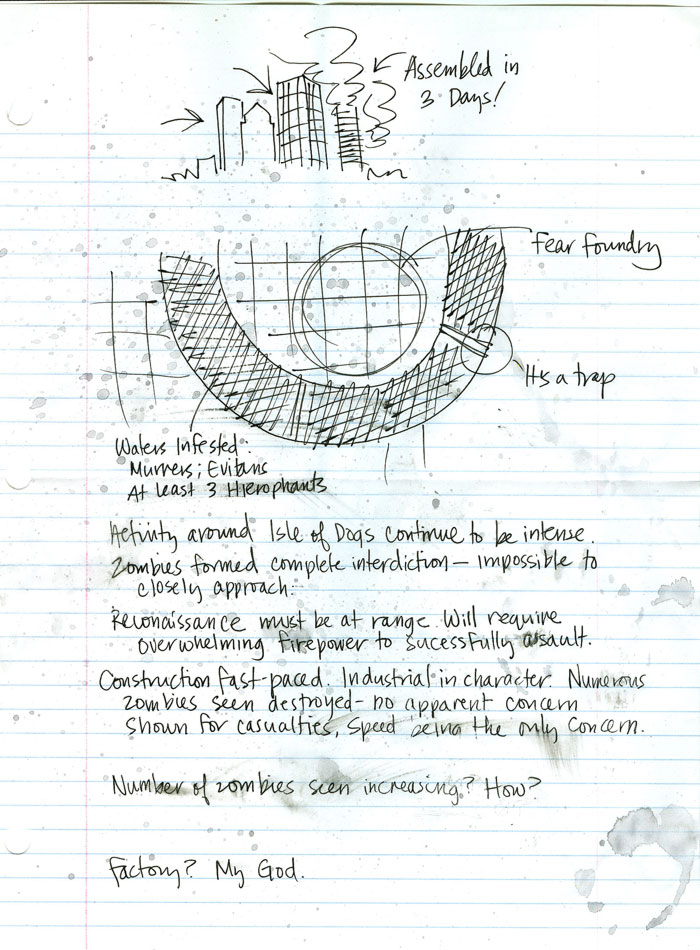 Assembled in
3 Days!
Fear Foundry
It's a trap
Waters Infested:
Murmers; Evitans
At Least 3 Hierophants
Activity around Isle of Dogs continue to be intense.
Zombies formed complete interdiction — impossible to
closely approach.
Reconaissance must be at range. Will require
overwhelming firepower to sucessfully assault.
Construction fast-paced. Industrial in character. Numerous
zombies seen destroyed - no apparent concern
shown for casualties, speed being the only concern.
Number of zombies seen increasing? How?
Factory? My God.